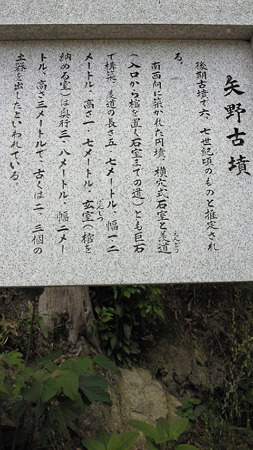 矢野古墳
後期古墳で六、七世紀頃のものと推定され
る。
南西向に築かれた円墳、横穴式石室と羨道
えんどう
(入口から棺を置く石室までの道)とも巨石
で構築、羨道の長さ五・七メートル・幅一・二
メートル・高さ一・七メートル・玄室(棺を
げんしつ
納める室)は奥行三・八メートル・幅二メー
トル、高さ三メートルで、古くは二・三個の
土器を出したといわれている。